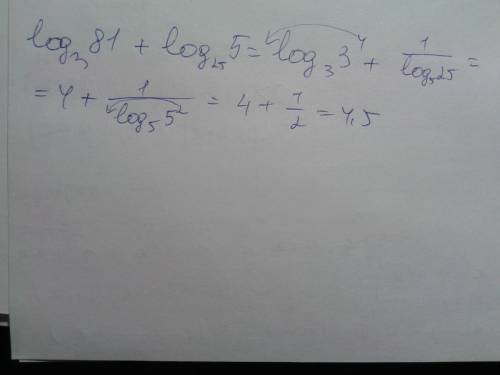 log₃ 81 + log₂₅ 5 = log₃ 3⁴ + 1/log₅ 25 =
= 4 + 1/log₅ 5² = 4 + 1/2 = 4,5